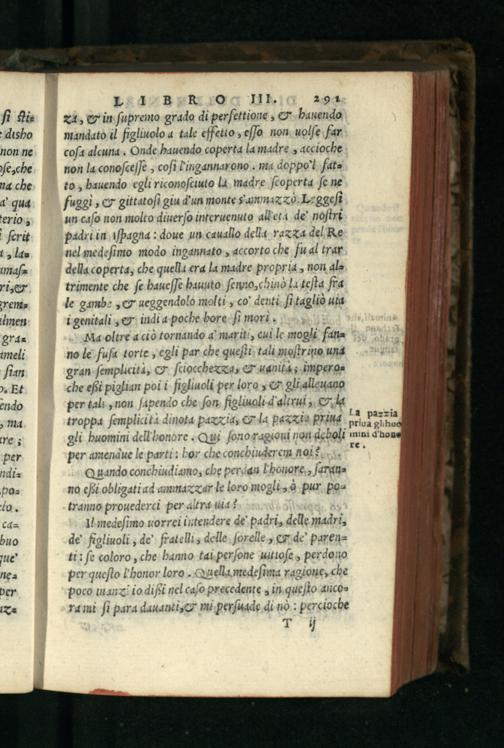 LIBRO III. 291
za, & in supremo grado di persettione, & hauendo
mandato il figliuolo a tale effetto, esso non uolse far
cosa alcuna. Onde hauendo coperta la madre, accioche
non la conoscesse, così l'ingannarono. ma doppo'l fat-
to, hauendo egli riconosciuto la madre scoperta se ne
fuggì, & gittatosi giu d'un monte s'ammazzò. Leggesi
un caso non molto diuerso interuenuto all'età de' nostri
padri in Ispagna: doue un cauallo della razza del Re
nel medesimo modo ingannato, accorto che fu al trar
della coperta, che quella era la madre propria, non al-
trimente che se hauesse hauuto senno, chinò la testa fra
le gambe, & ueggendolo molti, co' denti si tagliò uia
i genitali, & indi a poche hore si morì.
Ma oltre a ciò tornando a' mariti, cui le mogli fan-
no le fusa torte, egli par che questi tali mostrino una
gran semplicità, & sciocchezza, & uanità; impero-
che eßi piglian poi i figliuoli per loro, & gli alleuano
per tali, non sapendo che son figliuoli d'altrui, & la
troppa semplicità dinota pazzia, & la pazzia priua
gli huomini dell'honore. Qui sono ragioni non deboli
per amendue le parti: hor che conchiuderem noi?
La pazzia
priua gli huo
mini d'hono
re.
Quando conchiudiamo, che perdan l'honore, saran-
no eßi obligati ad ammazzar le loro mogli, ò pur po-
tranno prouederci per altra uia?
Il medesimo uorrei intendere de' padri, delle madri,
de' figliuoli, de' fratelli, delle sorelle, & de' paren-
ti: se coloro, che hanno tai persone uitiose, perdono
per questo l'honor loro. Quella medesima ragione, che
poco inanzi io dißi nel caso precedente, in questo anco-
ra mi si para dauanti, & mi persuade di nò: percioche
T ij